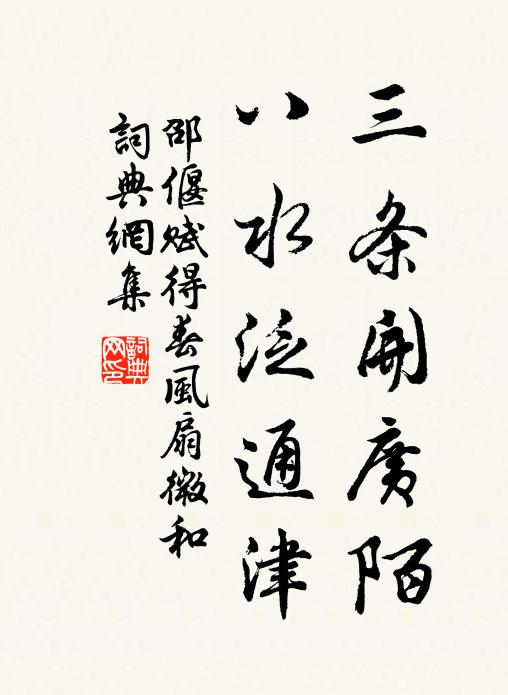 三条開廣陌
八水泛通津
邵偃賦得春風扇微和
詞典網集
詞典
网印